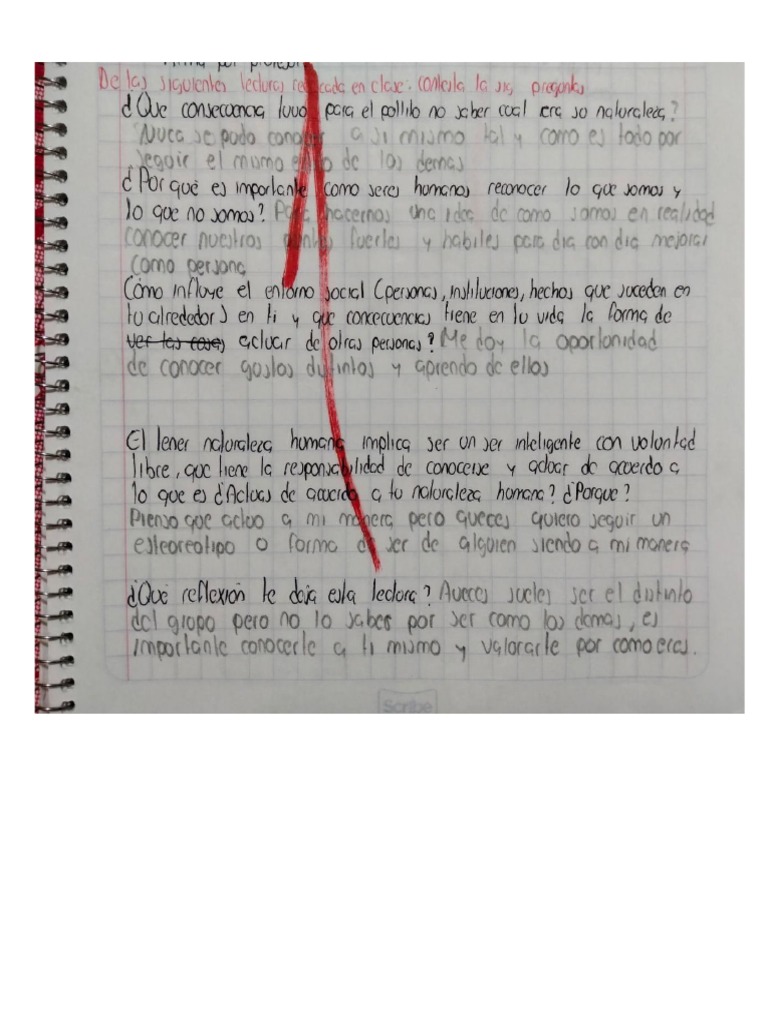 De las siguientes lecturas realizada en clase. contesta la sig preguntas
¿Que consecuencia tuvo para el pollito no saber cual era su naturaleza?
Nuca se pudo conocer a si mismo tal y como es todo por
seguir el mismo estilo de los demas
¿Por qué es importante como seres humanos reconocer lo que somos y
lo que no somos? Para hacernos una idea de como somos en realidad
conocer nuestros puntos fuertes y habiles para dia con dia mejorar
como persona
Cómo influye el entorno social (personas, instituciones, hechos que suceden en
tu alrededor) en ti y que concecuencias tiene en tu vida la forma de
ver las cosas actuar de otras personas? Me doy la oportunidad
de conocer gustos distintos y aprendo de ellos
El tener naturaleza humana implica ser un ser inteligente con voluntad
libre, que tiene la responsabilidad de conocerse y actuar de acuerdo a
lo que es ¿Actuas de acuerdo a tu naturaleza humana? ¿Porque?
Pienso que actuo a mi manera pero aveces quiero seguir un
esteoreotipo o forma de ser de alguien siendo a mi manera
¿Qué reflexión te deja esta lectura? Aveces sueles ser el distinto
del grupo pero no lo sabes por ser como los demas, es
importante conocerte a ti mismo y valorarte por como eres.
Scribe